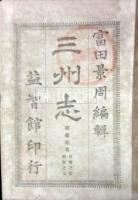 富田景周編輯
三州志
益智館印行